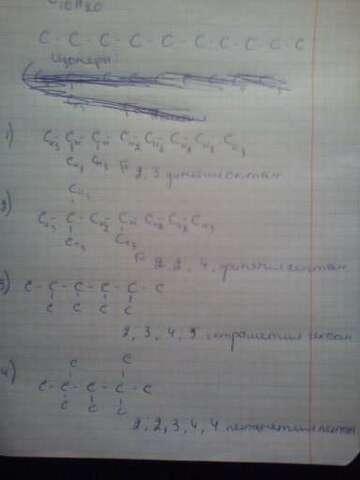 C10H20
C - C - C - C - C - C - C - C - C - C
Изомеры:
1) CH3 - CH - CH - CH2 - CH2 - CH2 - CH2 - CH3
CH3 CH3
2, 3 диметил октан
2)
CH3
CH3 - C - CH2 - CH - CH2 - CH2 - CH3
CH3 CH3
2, 2, 4, триметил гептан
3) C - C - C - C - C - C
C C C C
2, 3, 4, 5 тетраметил гексан
4)
C C
C - C - C - C - C
C C C
2, 2, 3, 4, 4 пентаметил пентан